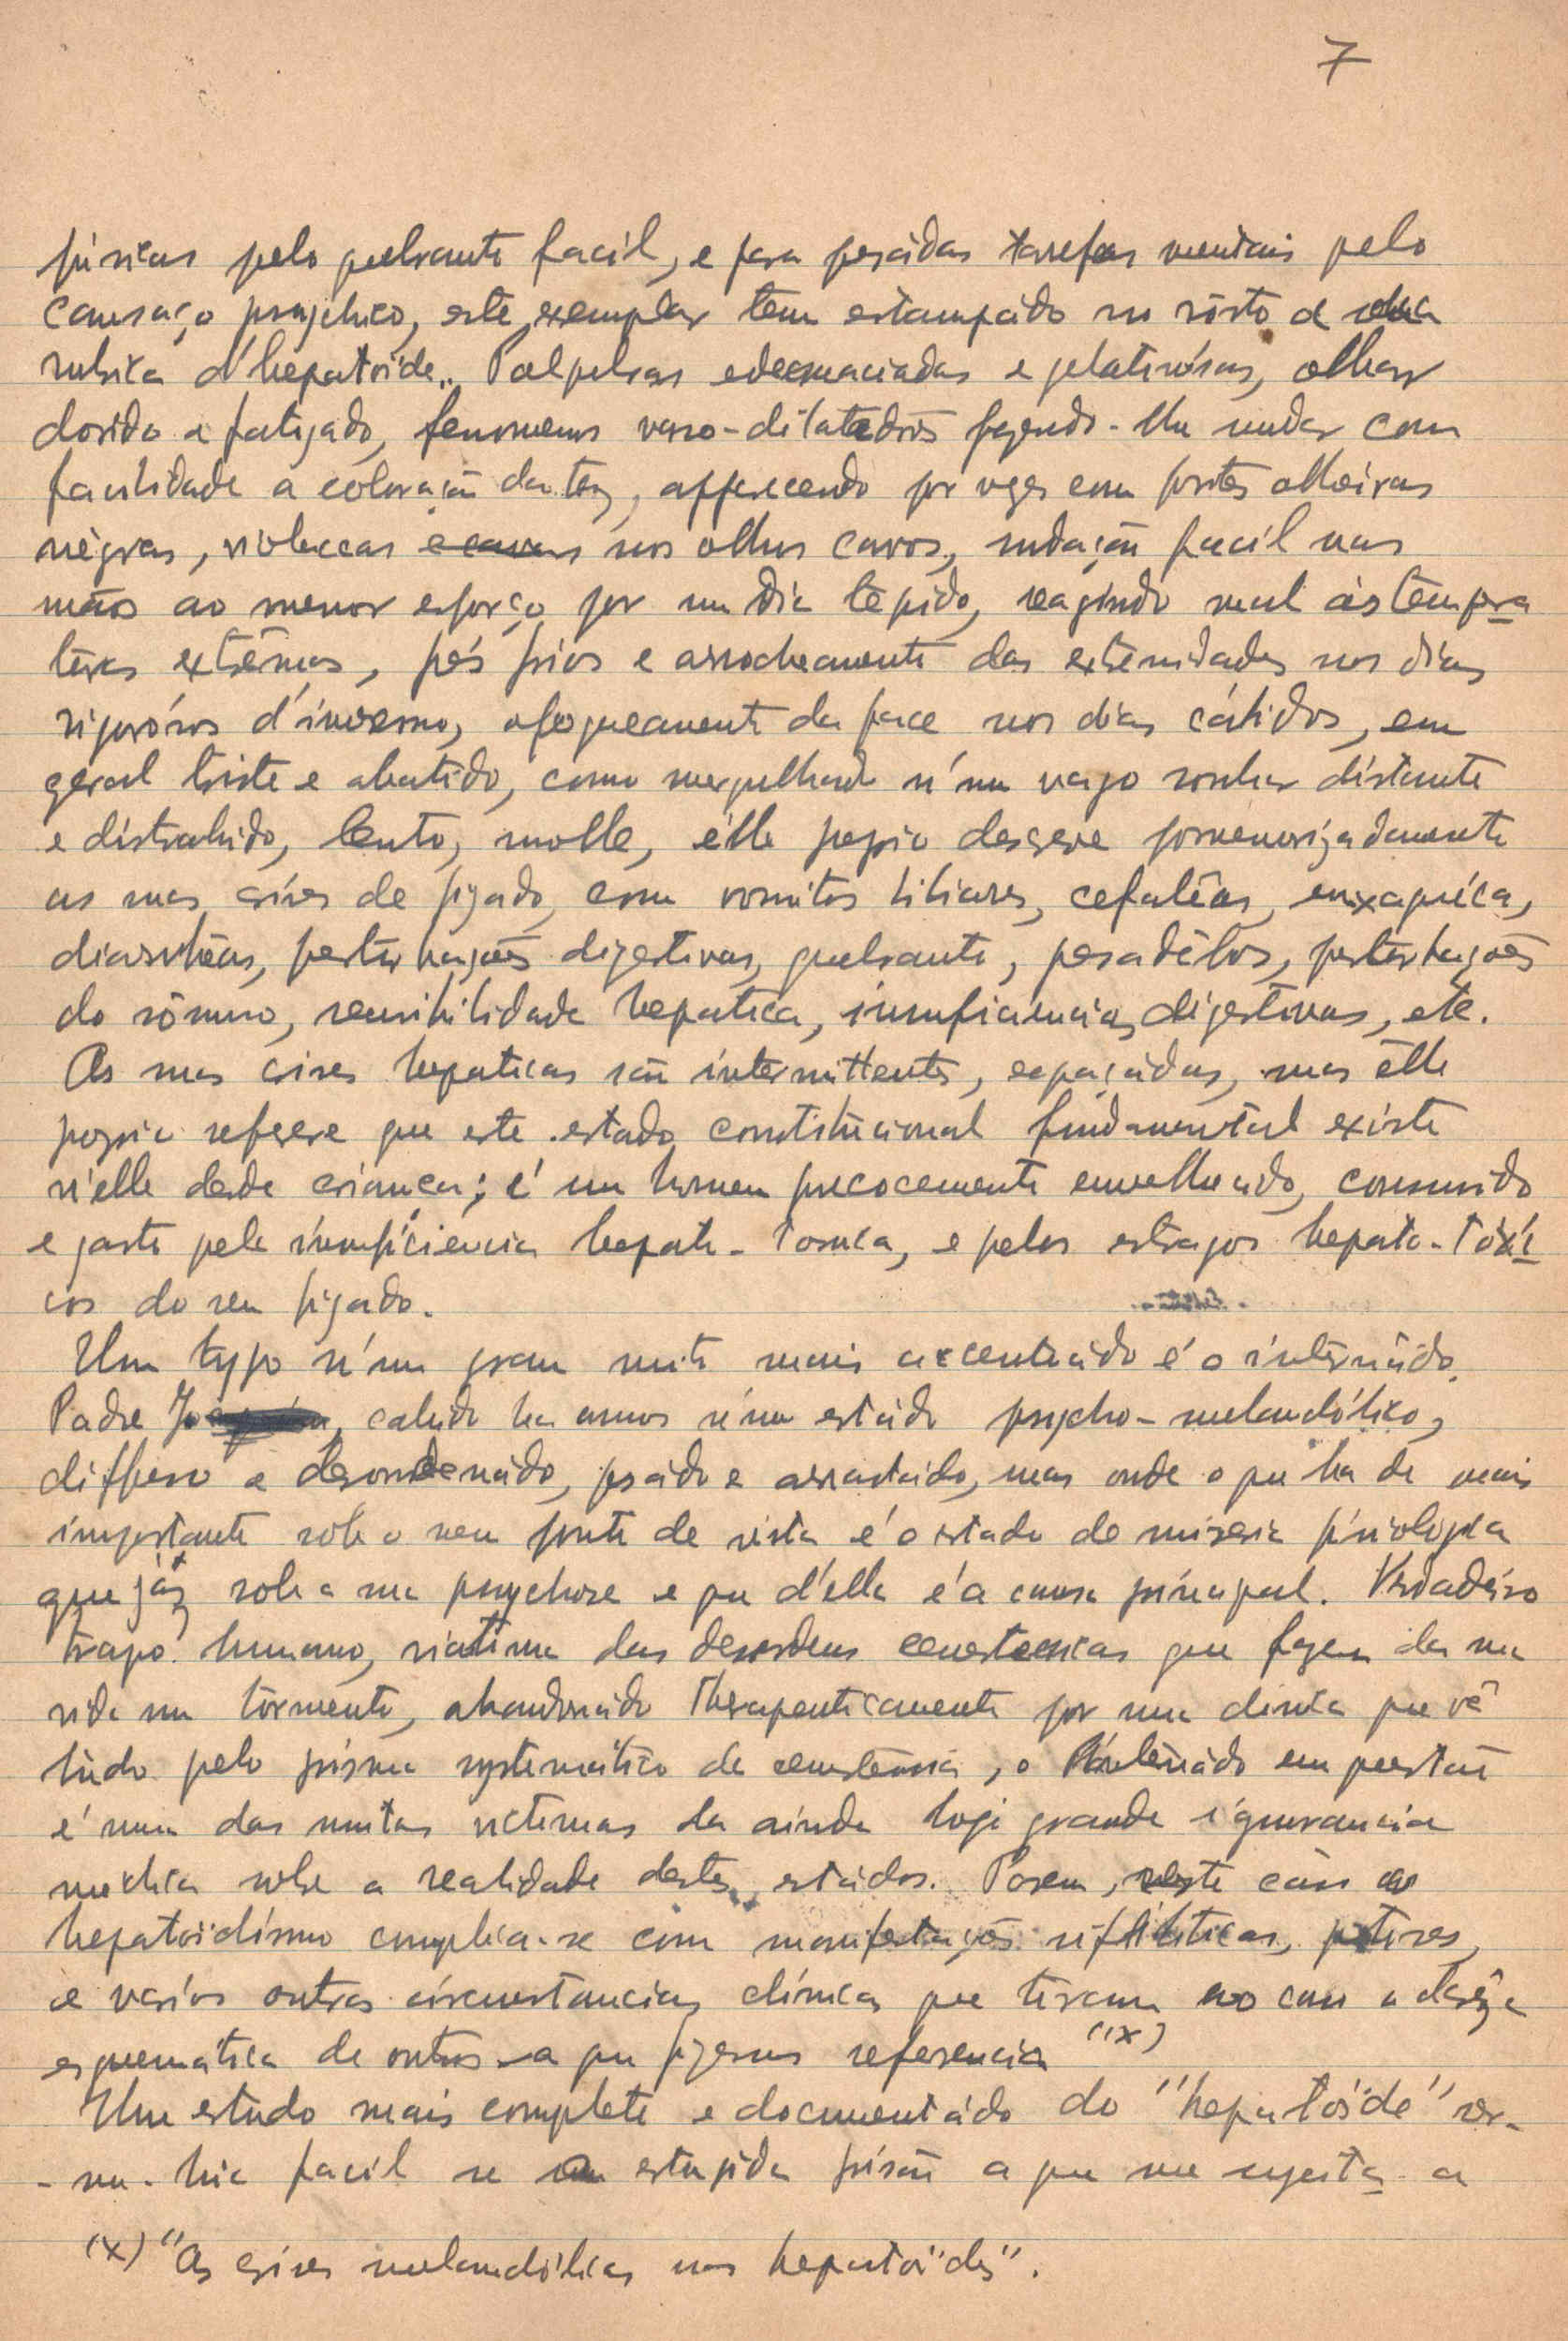 7
físicas pelo quebranto facil, e para pesádas tarefas mentais pelo
cansaço psychico, este exemplar tem estampádo no rôsto a sua
rubrica d'hepatoïde. Palpebras edemaciadas e gelatinósas, olhar
dorido e fatigado, fenomenos vaso-dilatadôres fazendo-lhe mudar com
facilidade a coloração da tez, apparecendo por vezes com fortes olheiras
négras, violaceas nos olhos cavos, sudação facil nas
mãos ao menor esforço, por um dia tépido, reagindo mal ás tempra
turas extrêmas, pés frios e arrocheamento das extremidades nos dias
rigorósos d'inverno, afogueamento da face nos dias cálidos, em
geral triste e abatido, como mergulhado n'um vago sonhar distante
e distrahido, lento, molle, élle proprio descreve pormenorizadamente
as suas crises de figado, com vomitos biliares, cefalêas, enxaquéca,
diarrhêas, perturbações digestivas, quebranto, pesadêlos, perturbações
do sômno, sensibilidade hepatica, insuficiencias digestivas, etc.
As suas crises hepaticas são intermittentes, espaçádas, mas êlle
proprio refere que este estado constitucional fundamental existe
n'elle desde criança; é um homem precocemente envelhecido, consumido
e gasto pela insuficiencia hepato-tonica, e pelos estragos hepato-tóxi
cos do seu figado.
Um typo n'um grau muito mais accentuádo é o internádo
Padre cahido ha annos n'um estádo psycho-melancólico,
diffuso e desordenádo, pesádo e arrastádo, mas onde o que ha de mais
importante sob o meu ponto de vista é o estado de miseria fisiologica
que jáz sob a sua psychose e que d'ella é a causa principal. Verdadeiro
trapo humano, victima das desordens cenestesicas que fazem da sua
vida um tormento, abandonádo therapeuticamente por uma clinica que vê
tudo pelo prisma systemático da cenestesia, o internádo em questão
é uma das muitas victimas da ainda hoje grande ignorancia
medica sobre a realidade destes estádos. Porem, neste caso o
hepatoidismo complica-se com manifestações sifiliticas,
e varias outras circunstancias clinicas que tiram ao caso a
esquemática de outros a que fizemos referencia (x)
Um estudo mais completo e documentádo do "hepatóïde" ser-
-me-hia facil se a estupida prisão a que me sujeita a
(x) "As crises melancólicas nos hepatoïdes".